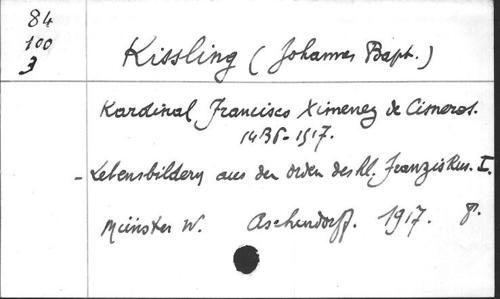 84
100
3
Kissling (Johannes Bapt.)
Kardinal Francisco Ximenez de Cisneros.
1436-1517.
- Lebensbildern aus den Orden des hl. Franziskus. I.
Münster W. Aschendorff. 1917. 8.